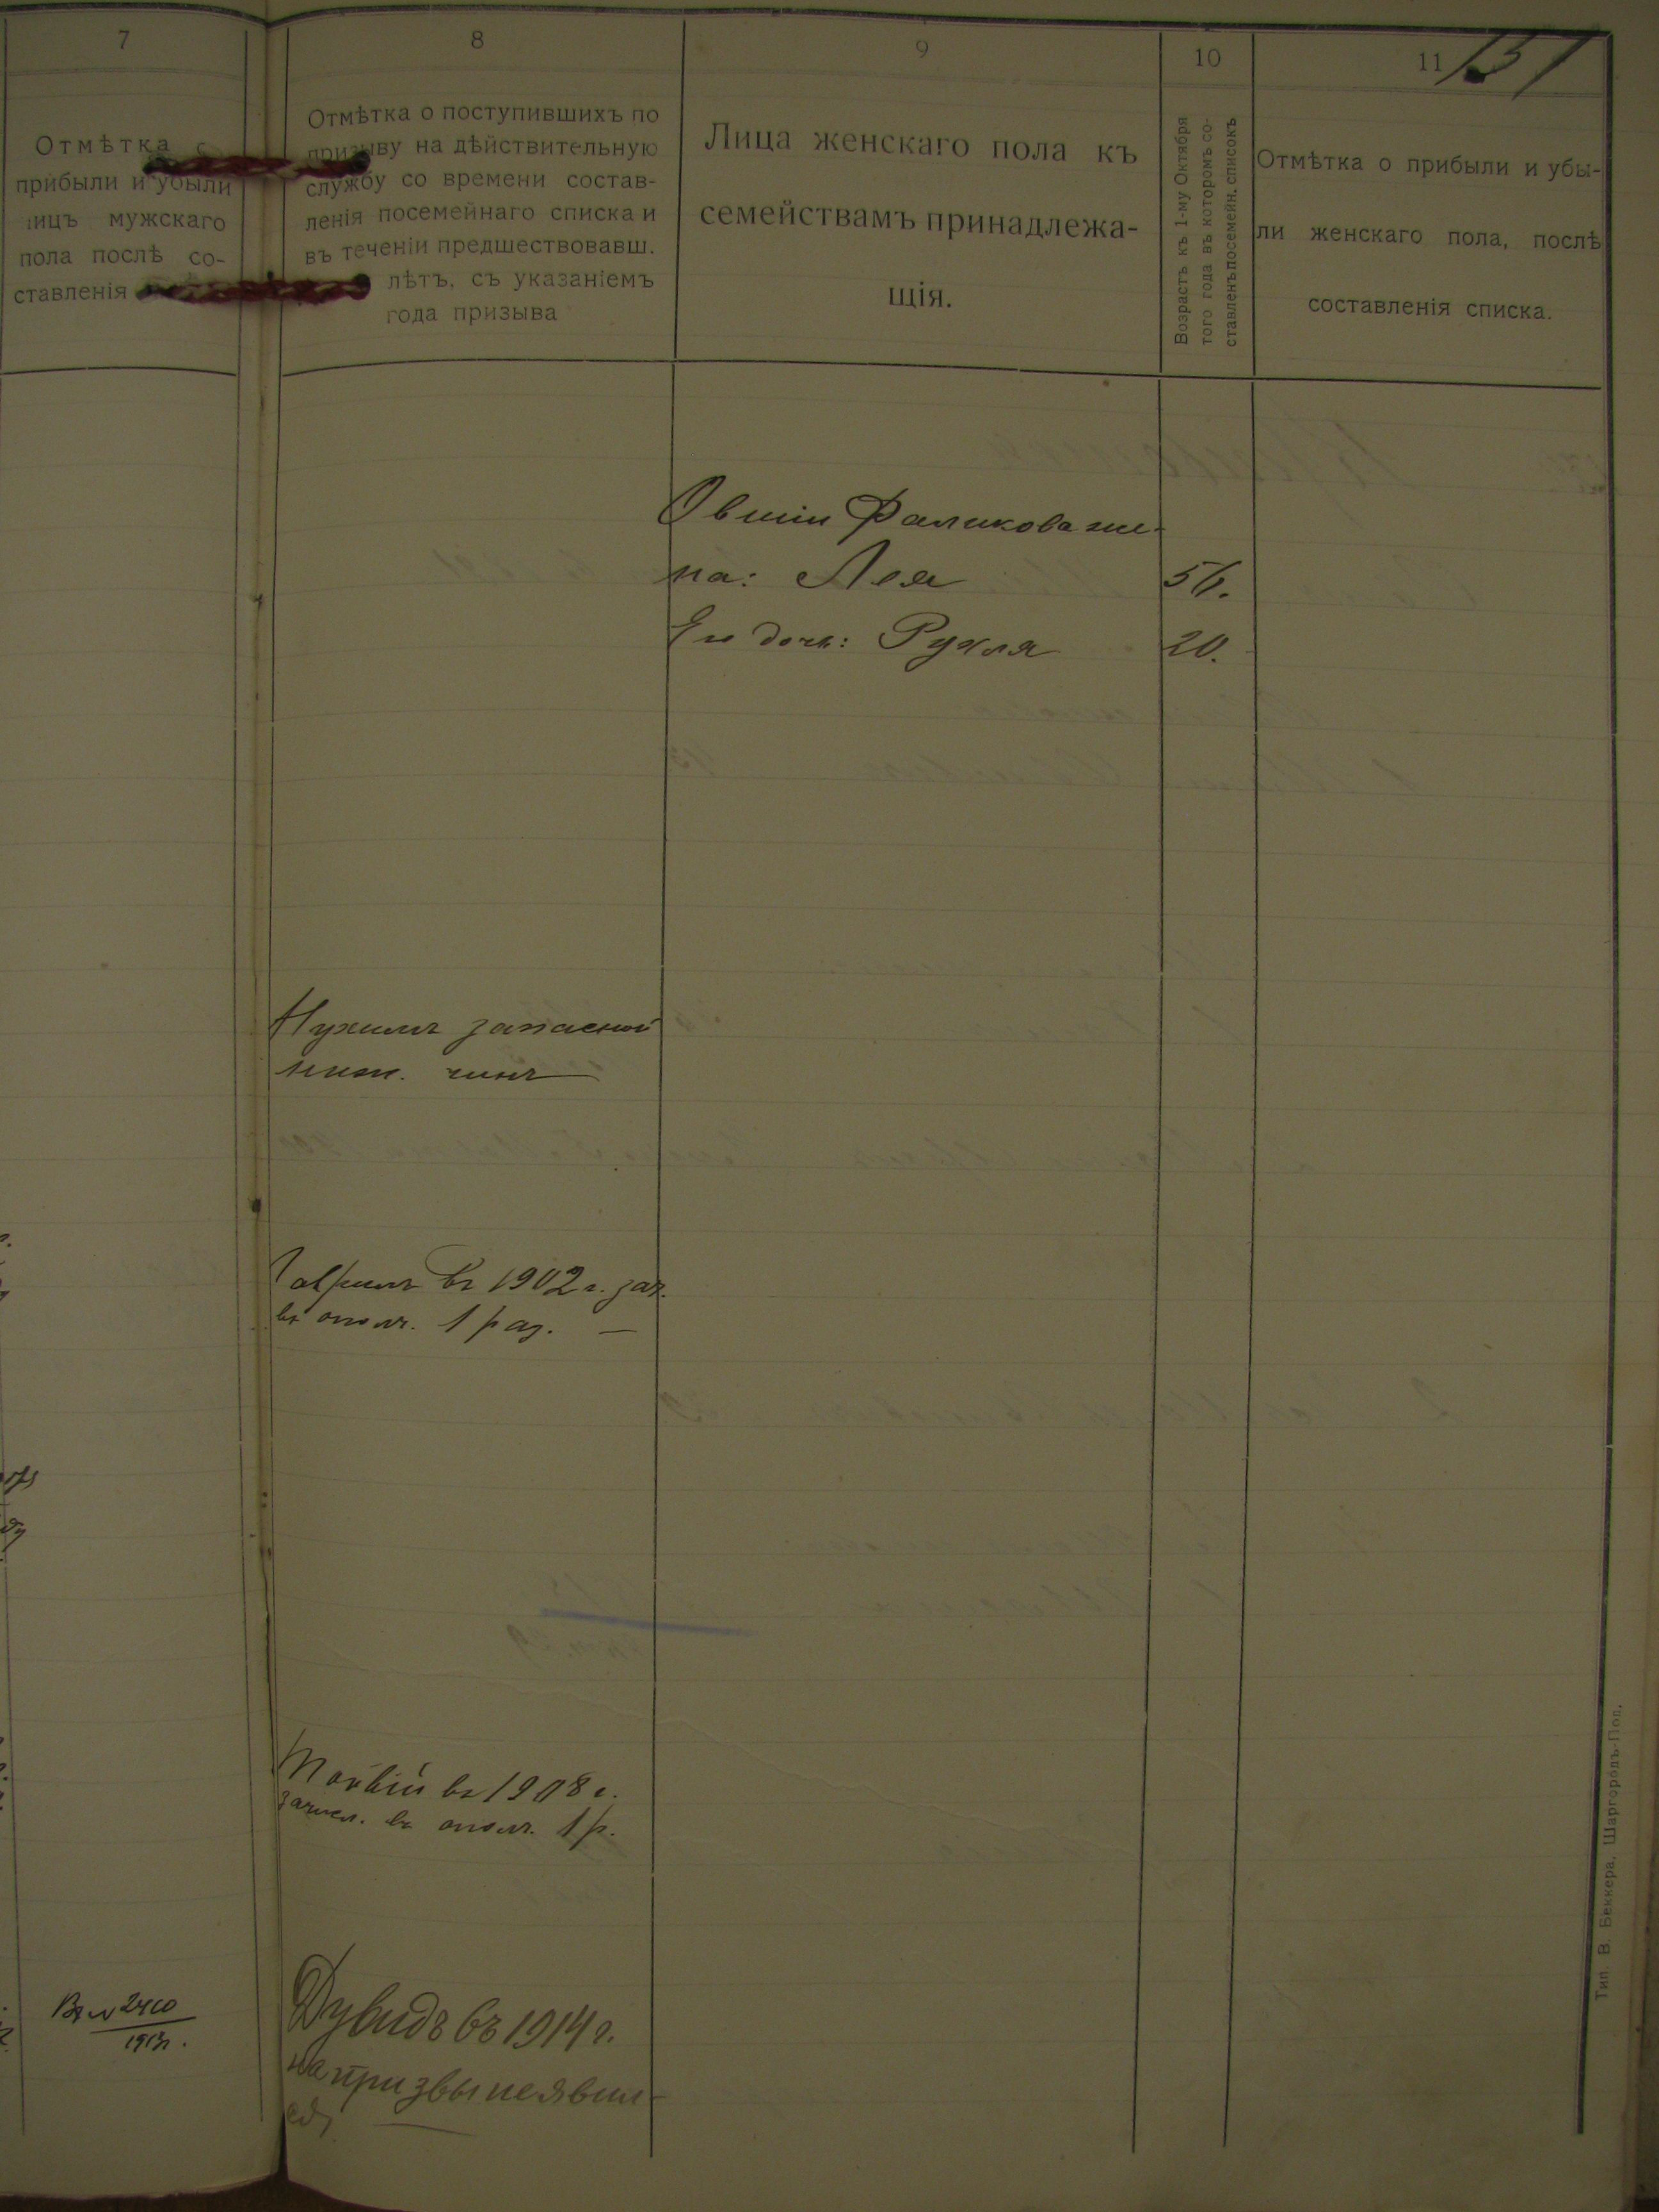 7
Отмѣтка
прибыли и убыли
лицъ мужскаго
пола послѣ со-
ставленія
8
Отмѣтка о поступившихъ по
призыву на дѣйствительную
службу со времени состав-
ленія посемейнаго списка и
въ теченіи предшествовавш.
лѣтъ, съ указаніемъ
года призыва
9
Лица женскаго пола къ
семействамъ принадлежа-
щія.
10
Возрастъ къ 1-му Октября
того года въ которомъ со-
ставленъ посемейн. списокъ
11
131
Отмѣтка о прибыли и убы-
ли женскаго пола, послѣ
составленія списка.
Овшіи Фаликова же-
на: Лея 56.
Его дочь: Рухля 20.
Нухимъ запасной
ниж. чинъ
Гаврилъ въ 1902 г. зач.
въ ополч. 1 раз. —
въ 1908 г.
зачисл. въ ополч. 1 р.
Дувидъ въ 1914 г.
на призвы неявил-
ся
2410
1913 г.
Тип. В. Беккера, Шаргородъ-Под.